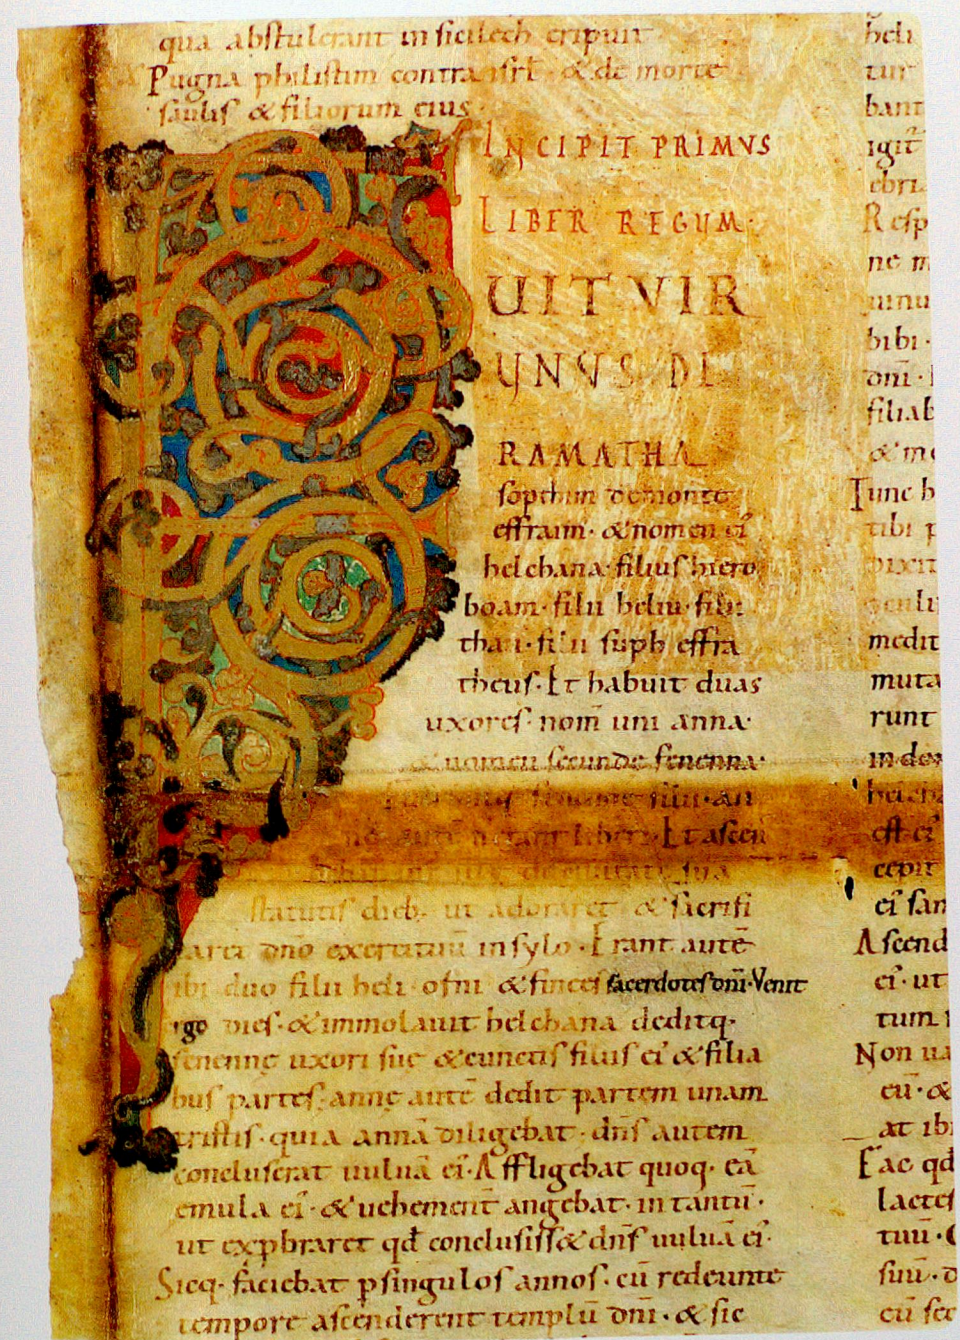 qua abstulerant in sicilech eripuit
Pugna philistim contra isrl̄ · & de morte
saulis & filiorum eius
INCIPIT PRIMVS
LIBER REGUM·
UIT VIR
VNVS DE
RAMATHA
sophim de monte
effraim· & nomen ei'
helchana· filius hiero
boam· filii heliu· filii
thau· filii suph effra
theus· Et habuit duas
uxores· nom̄ uni anna·
& nomen secunde fenenna·
filii· an
nę autē n̄ erant liberi· Et ascen
de ciuitate sua
statutis dieb; ut adoraret & sacrifi
caret dn̄o exercituū in sylo· Erant autē
ibi duo filii heli· ofni & finees sacerdotes dn̄i· Venit
ergo dies· & immolauit helchana deditq·
fenenne uxori suę & cunctis filiis ei' & filia
bus partes· annę autē dedit partem unam
tristis· quia annā diligebat· dn̄s autem
concluserat uuluā ei'· Affligebat quoq· eā
emula ei'· & uehement̄ angebat· in tantū·
ut exp̄braret qd̄ conclusiss& dn̄s uuluā ei'·
Sicq· faciebat p singulos annos· cū redeunte
tempore ascenderent templū dn̄i· & sic
heli
tur
bant
igit̄
ebri
Resp
ne m
uinu
bibi·
dn̄i·
filiab
Tunc h
tibi p
dixit
medit
muta
runt
in do
helch
est ei'
cepit
ei' san
Ascend
ei'· ut
tum
Non ua
eū· &
at ibi
Fac qd̄
lactes
tuū·
suū·
eū sec